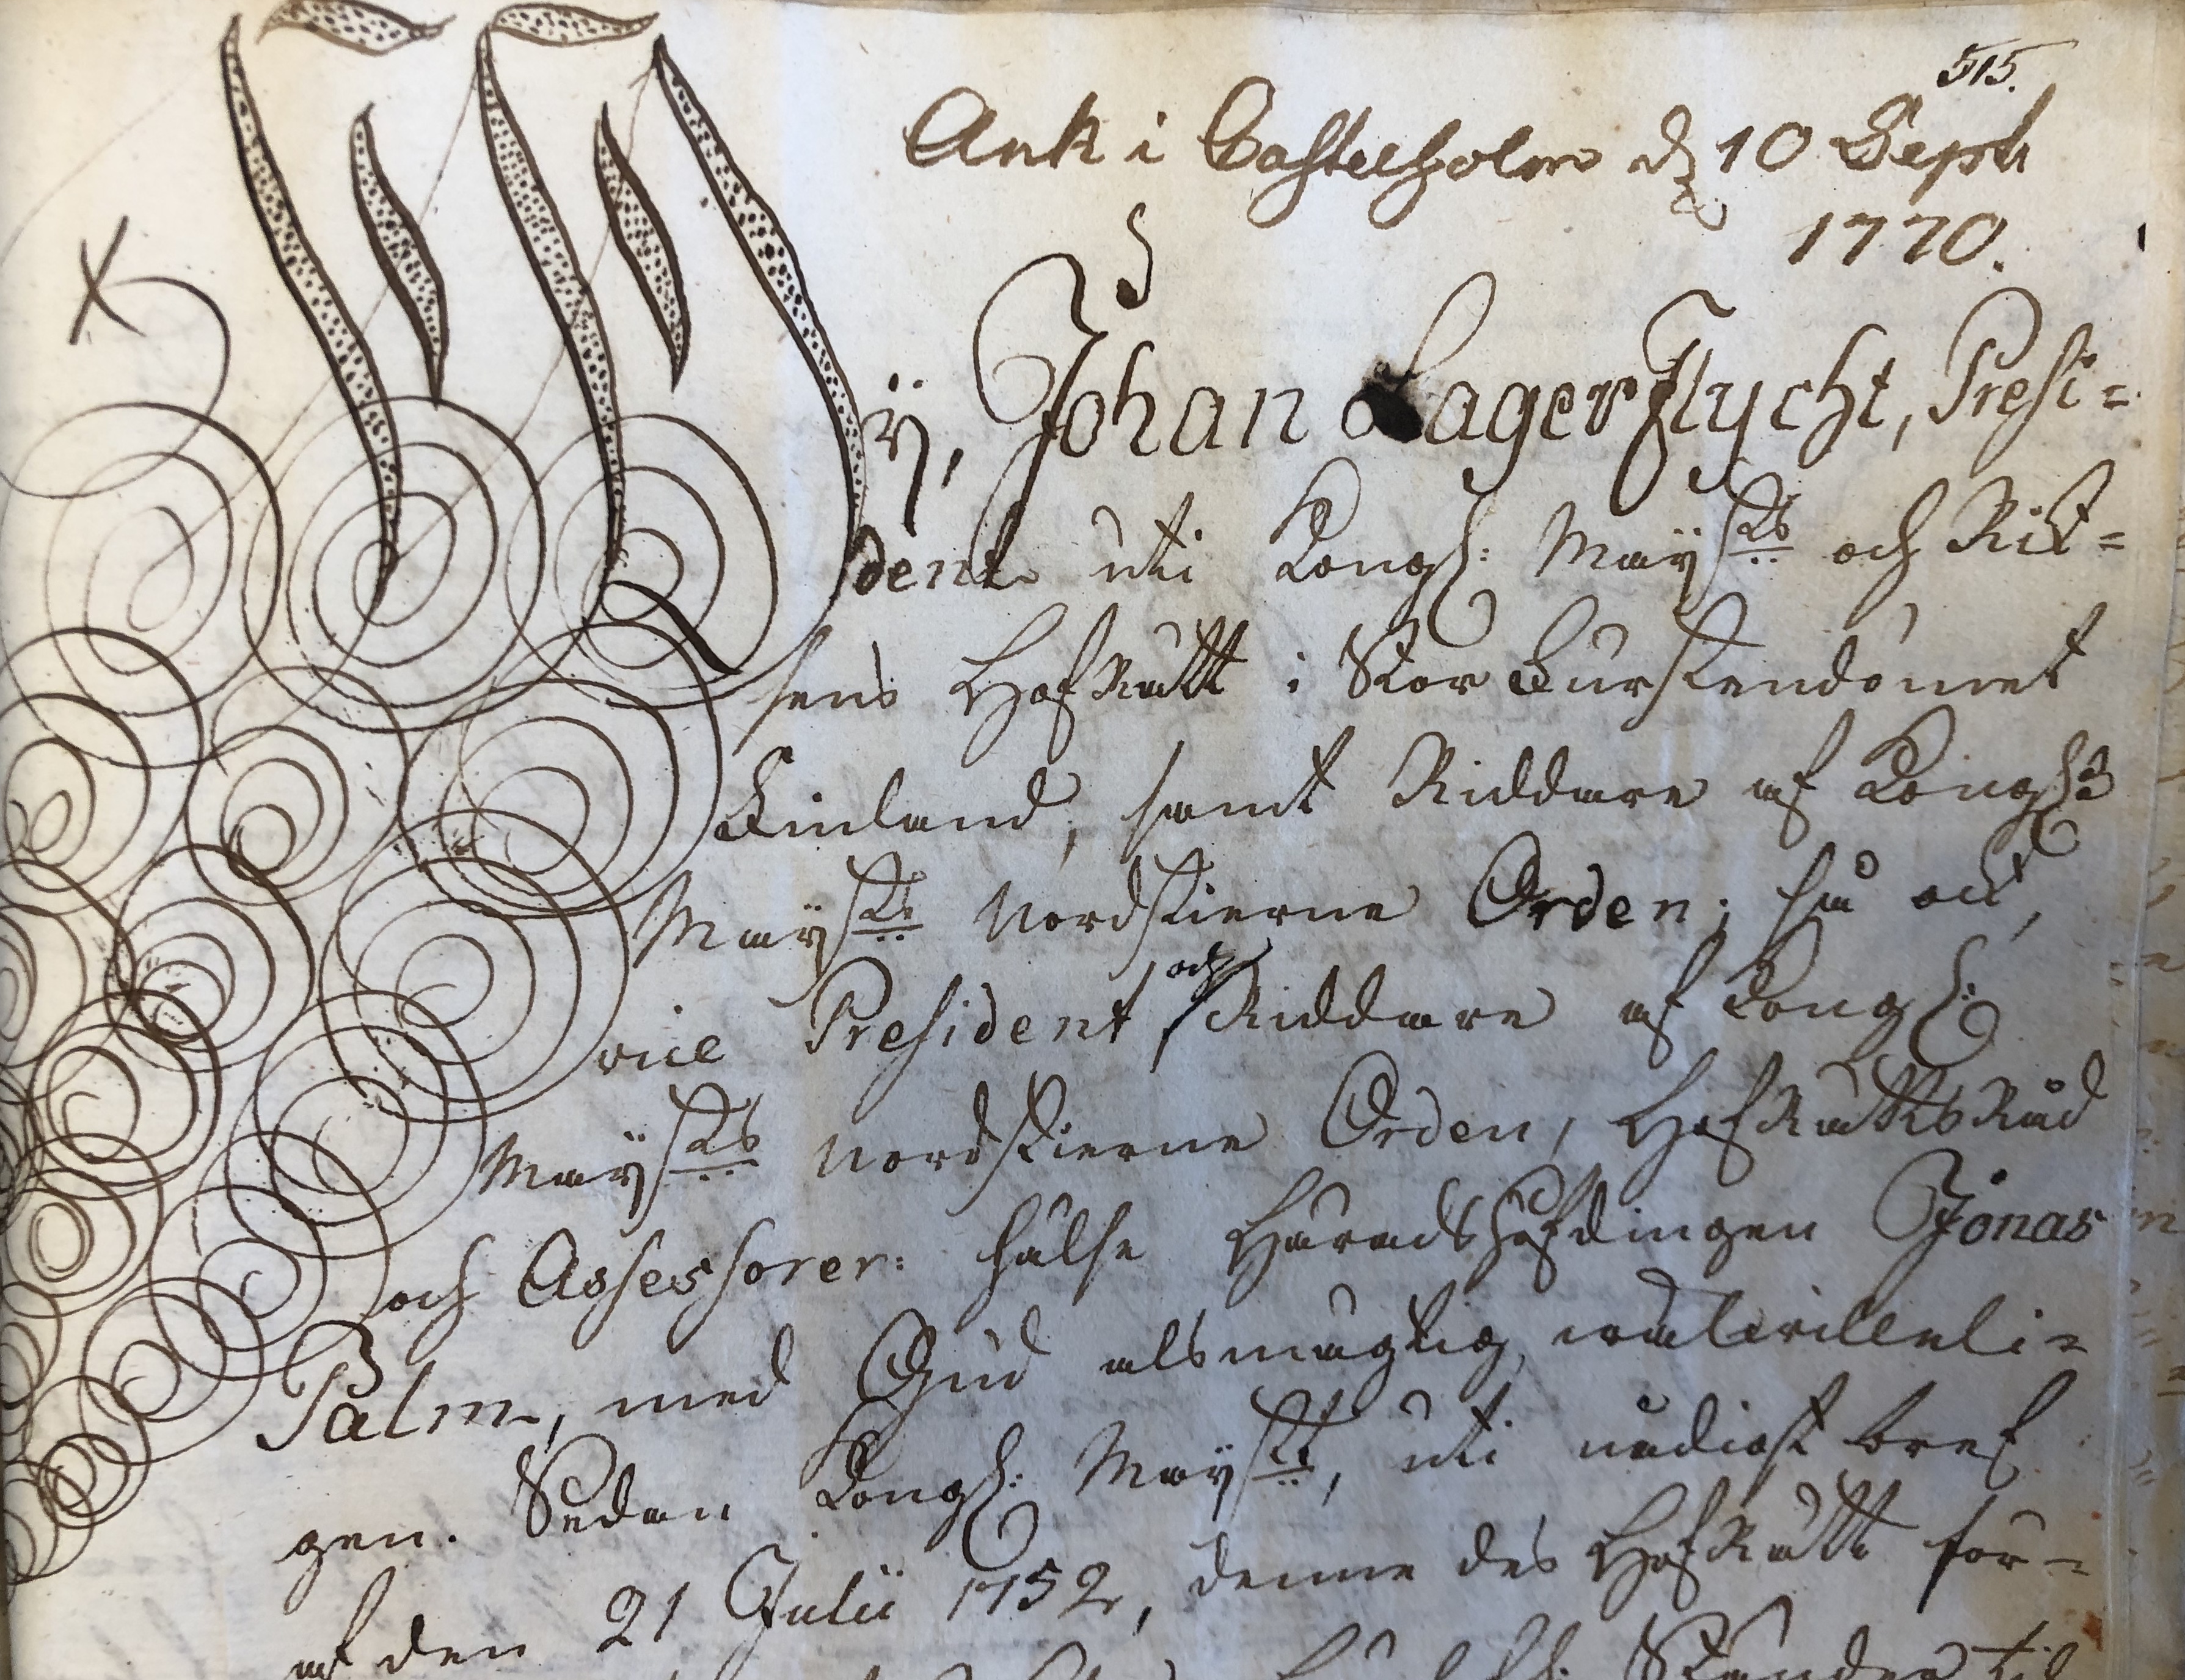 515.
Ank i Castelholm d 10 Sept
1770.
Wÿ, Johan Lagerflycht, Presi=
dent uti Kongl: Maÿtts och Rik=
sens HofRätt i Stor Furstendömet
Finland, samt Riddare af Kongl
Maÿtts Nordstierne Orden; så ock,
vice President och Riddare af Kongl:
Maÿtts Nordstierne Orden, HofRätts Råd
och Assessorer: hälse Häradshöfdingen Jonas
Palm, med Gud alsmägtig, wälwilleli=
gen. Sedan Kongl: Maÿtt, uti nådigst bref
af den 21 Julii 1752, denne des HofRätt för=
Ständer til